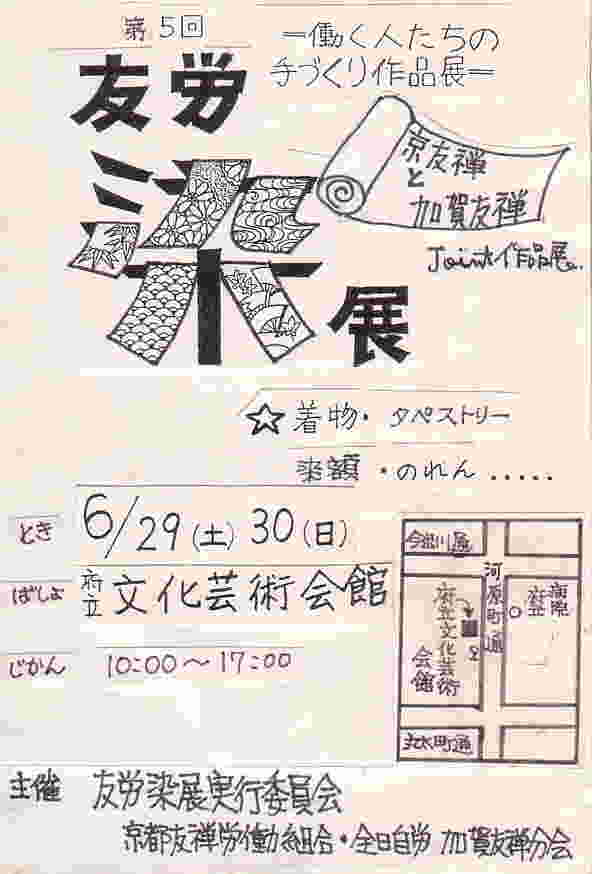 第5回
=働く人たちの
手づくり作品展=
友労
染
展
京友禅
と
加賀友禅
Joint作品展。
☆着物・タペストリー
染額・のれん.....
とき 6/29(土) 30(日)
ばしょ 府立 文化芸術会館
じかん 10:00〜17:00
今出川通
河原町通
府立文化芸術
会館
府立
病院
丸太町通
主催 友労染展実行委員会
京都友禅労働組合・全日自労 加賀友禅分会